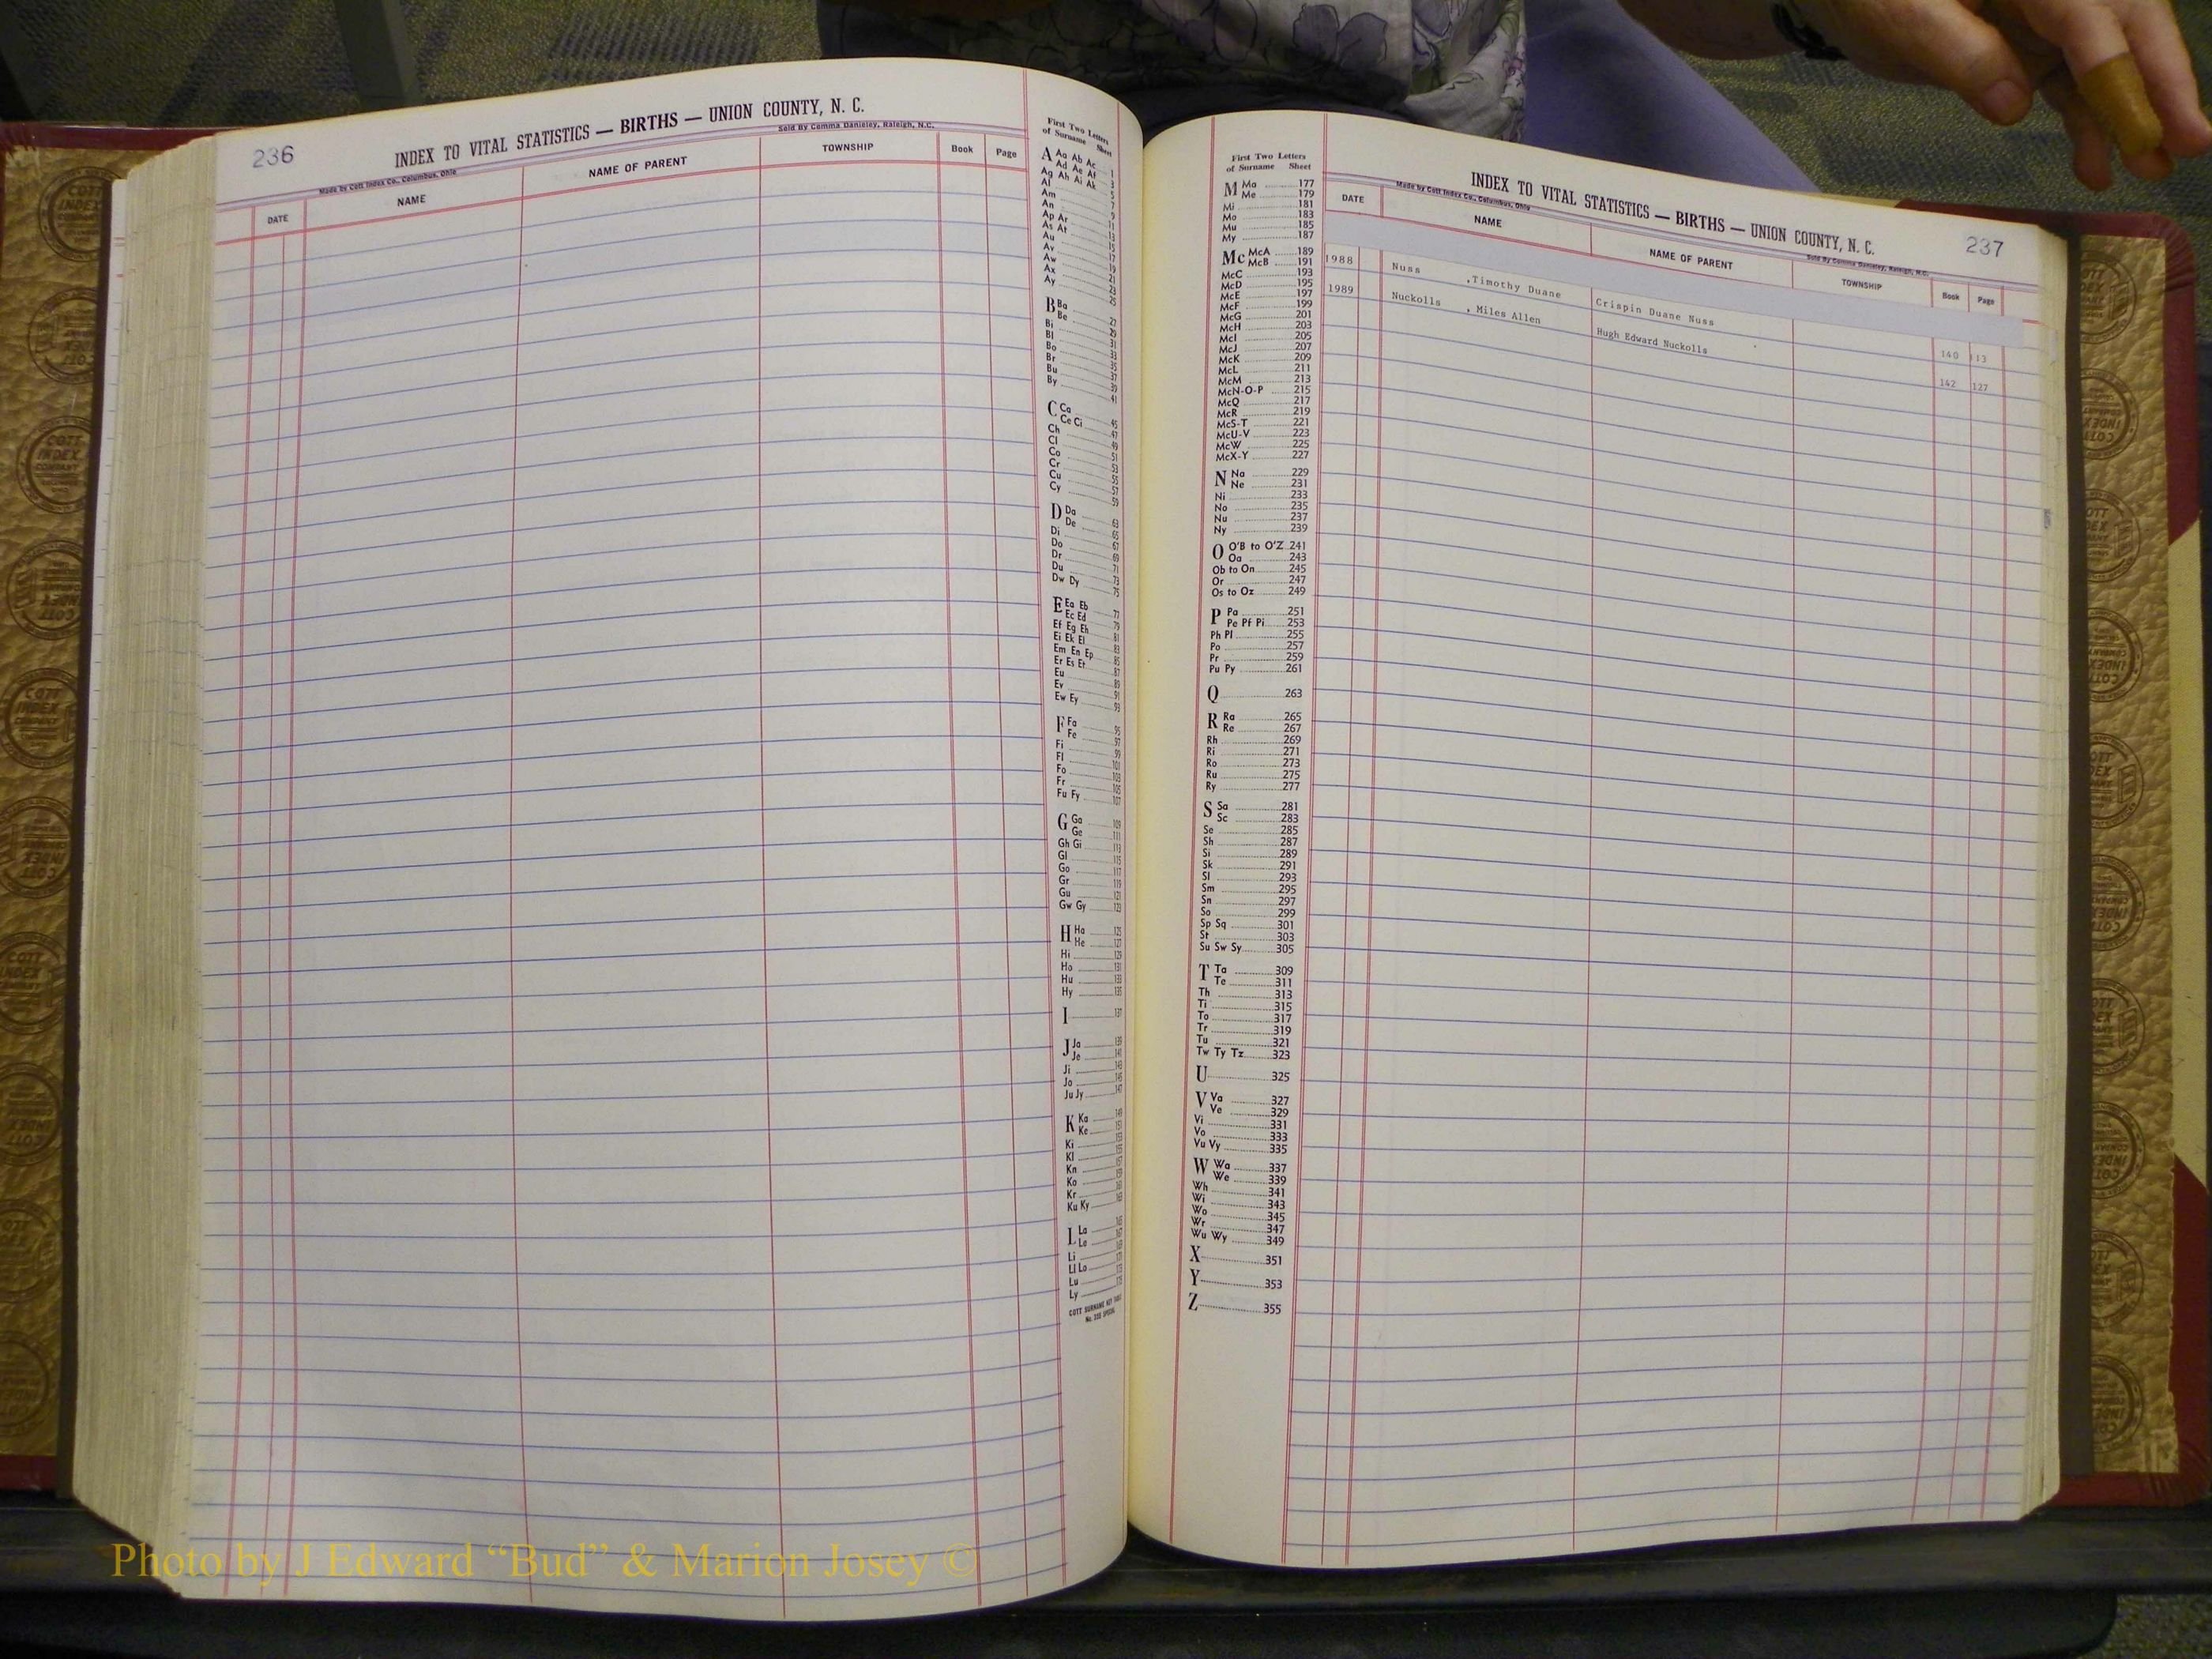 236
INDEX TO VITAL STATISTICS — BIRTHS — UNION COUNTY, N. C.
Made by Cott Index Co., Columbus, Ohio
Sold By Comma Danieley, Raleigh, N.C.
DATE NAME NAME OF PARENT TOWNSHIP Book Page
First Two Letters
of Surname Sheet
A Aa Ab Ac 1
Ad Ae Af 3
Ag Ah Ai Ak 5
Al 7
Am 9
An 11
Ap Ar 13
As At 15
Au 17
Av 19
Aw 21
Ax 23
Ay 25
B Ba 27
Be 29
Bi 31
Bl 33
Bo 35
Br 37
Bu 39
By 41
C Ca 45
Ce Ci 47
Ch 49
Cl 51
Co 53
Cr 55
Cu 57
Cy 59
D Da 63
De 65
Di 67
Do 69
Dr 71
Du 73
Dw Dy 75
E Ea Eb 77
Ec Ed 79
Ef Eg Eh 81
Ei Ek El 83
Em En Ep 85
Er Es Et 87
Eu 89
Ev 91
Ew Ey 93
F Fa 95
Fe 97
Fi 99
Fl 101
Fo 103
Fr 105
Fu Fy 107
G Ga 109
Ge 111
Gh Gi 113
Gl 115
Go 117
Gr 119
Gu 121
Gw Gy 123
H Ha 125
He 127
Hi 129
Ho 131
Hu 133
Hy 135
I 137
J Ja
Je
Ji
Jo
Ju Jy
K Ka
Ke
Ki
Kl
Kn
Ko
Kr
Ku Ky
L La
Le
Li
Ll Lo
Lu
Ly
COTT SURNAME KEY
First Two Letters
of Surname Sheet
M Ma 177
Me 179
Mi 181
Mo 183
Mu 185
My 187
Mc McA 189
McB 191
McC 193
McD 195
McE 197
McF 199
McG 201
McH 203
McI 205
McJ 207
McK 209
McL 211
McM 213
McN-O-P 215
McQ 217
McR 219
McS-T 221
McU-V 223
McW 225
McX-Y 227
N Na 229
Ne 231
Ni 233
No 235
Nu 237
Ny 239
O O'B to O'Z 241
Oa 243
Ob to On 245
Or 247
Os to Oz 249
P Pa 251
Pe Pf Pi 253
Ph Pl 255
Po 257
Pr 259
Pu Py 261
Q 263
R Ra 265
Re 267
Rh 269
Ri 271
Ro 273
Ru 275
Ry 277
S Sa 281
Sc 283
Se 285
Sh 287
Si 289
Sk 291
Sl 293
Sm 295
Sn 297
So 299
Sp Sq 301
St 303
Su Sw Sy 305
T Ta 309
Te 311
Th 313
Ti 315
To 317
Tr 319
Tu 321
Tw Ty Tz 323
U 325
V Va 327
Ve 329
Vi 331
Vo 333
Vu Vy 335
W Wa 337
We 339
Wh 341
Wi 343
Wo 345
Wr 347
Wu Wy 349
X 351
Y 353
Z 355
237
INDEX TO VITAL STATISTICS — BIRTHS — UNION COUNTY, N. C.
Made by Cott Index Co., Columbus, Ohio
Sold By Comma Danieley, Raleigh, N.C.
DATE NAME NAME OF PARENT TOWNSHIP Book Page
1988 Nuss ,Timothy Duane Crispin Duane Nuss 140 113
1989 Nuckolls , Miles Allen Hugh Edward Nuckolls 142 127
Photo by J Edward “Bud” & Marion Josey ©